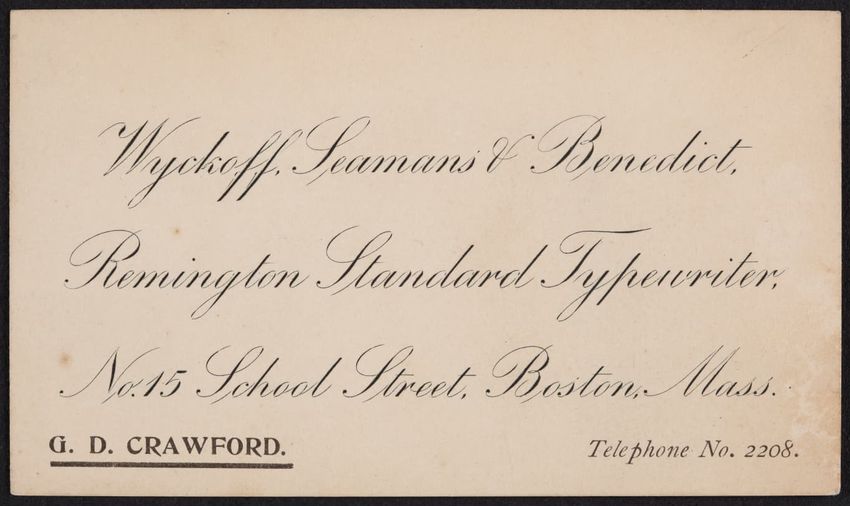 Wyckoff, Seamans & Benedict,
Remington Standard Typewriter,
No. 15 School Street, Boston, Mass.
G. D. CRAWFORD.
Telephone No. 2208.